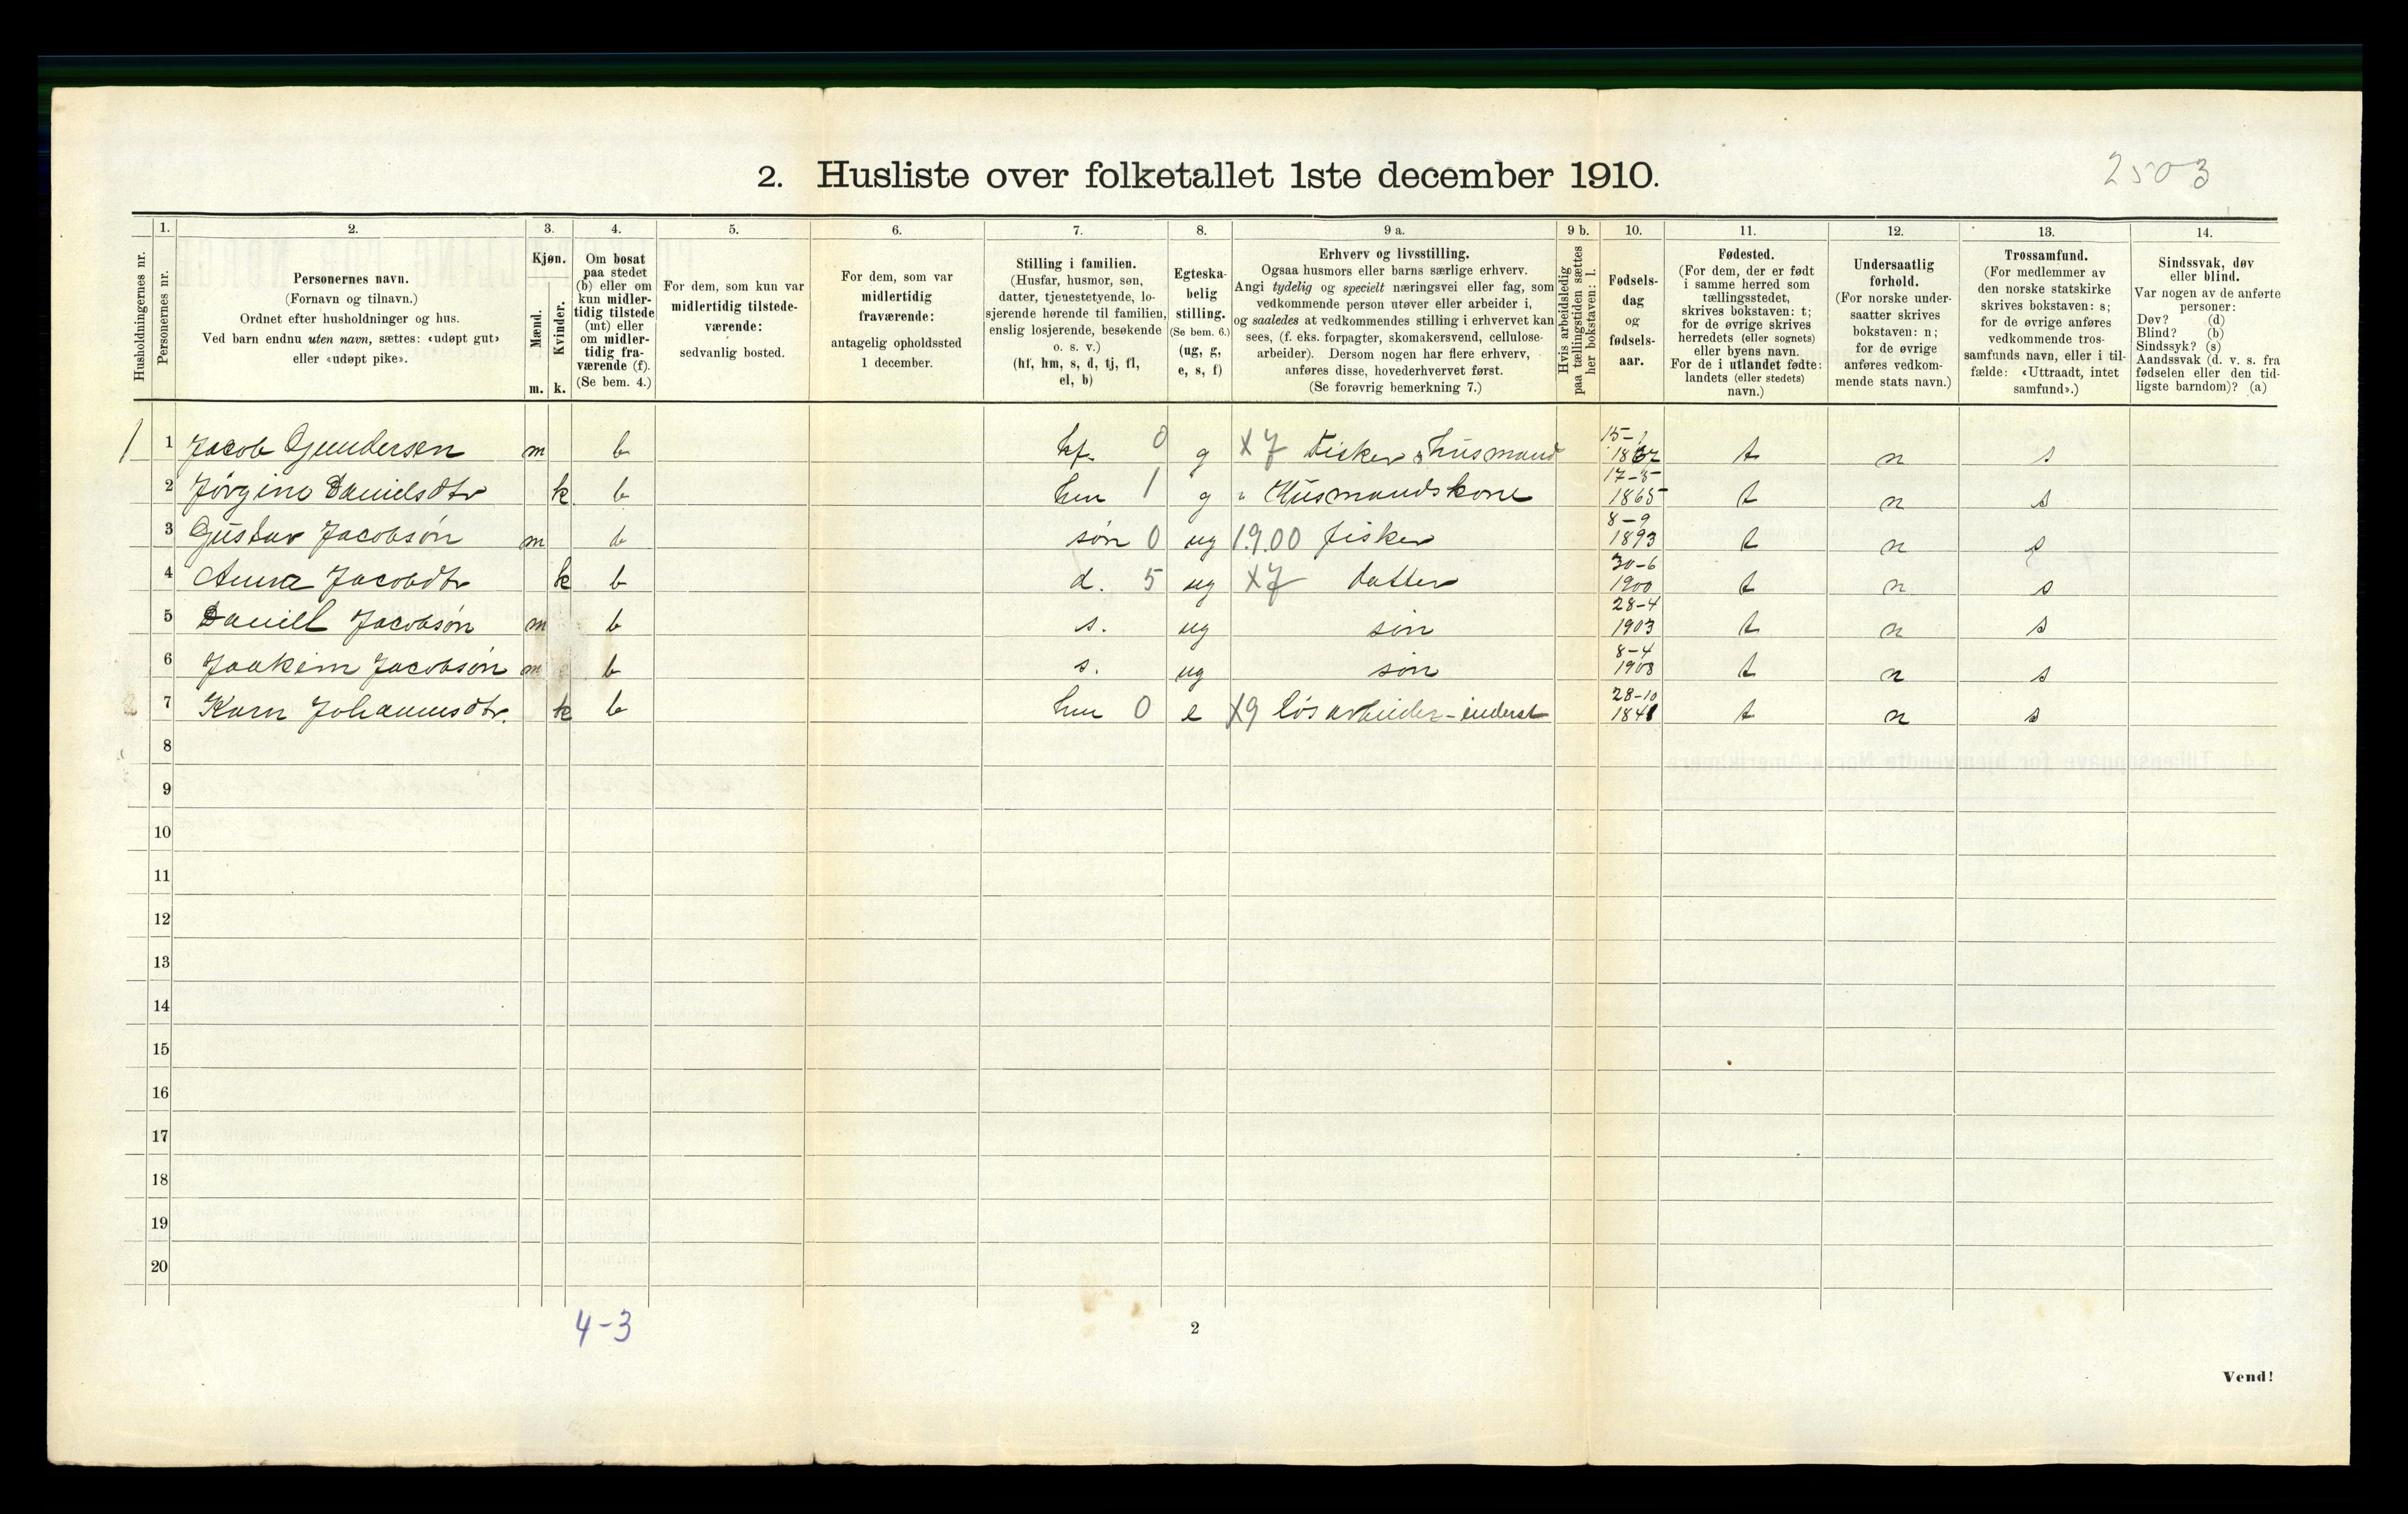 2. Husliste over folketallet 1ste december 1910.
2503
Husholdningernes nr.
1.
Personernes nr.
2.
Personernes navn.
(Fornavn og tilnavn.)
Ordnet efter husholdninger og hus.
Ved barn endnu uten navn, sættes: «udøpt gut»
eller «udøpt pike».
3.
Kjøn.
Mænd.
Kvinder.
m. k.
4.
Om bosat
paa stedet
(b) eller om
kun midler-
tidig tilstede
(mt) eller
om midler-
tidig fra-
værende (f).
(Se bem. 4.)
5.
For dem, som kun var
midlertidig tilstede-
værende:
sedvanlig bosted.
6.
For dem, som var
midlertidig
fraværende:
antagelig opholdssted
1 december.
7.
Stilling i familien.
(Husfar, husmor, søn,
datter, tjenestetyende, lo-
sjerende hørende til familien,
enslig losjerende, besøkende
o. s. v.)
(hf, hm, s, d, tj, fl,
el, b)
8.
Egteska-
belig
stilling.
(Se bem. 6.)
(ug, g,
e, s, f)
9 a.
Erhverv og livsstilling.
Ogsaa husmors eller barns særlige erhverv.
Angi tydelig og specielt næringsvei eller fag, som
vedkommende person utøver eller arbeider i,
og saaledes at vedkommendes stilling i erhvervet kan
sees, (f. eks. forpagter, skomakersvend, cellulose-
arbeider). Dersom nogen har flere erhverv,
anføres disse, hovederhvervet først.
(Se forøvrig bemerkning 7.)
9 b.
Hvis arbeidsledig
paa tællingstiden sættes
her bokstaven: l.
10.
Fødsels-
dag
og
fødsels-
aar.
11.
Fødested.
(For dem, der er født
i samme herred som
tællingsstedet,
skrives bokstaven: t;
for de øvrige skrives
herredets (eller sognets)
eller byens navn.
For de i utlandet fødte:
landets (eller stedets)
navn.)
12.
Undersaatlig
forhold.
(For norske under-
saatter skrives
bokstaven: n;
for de øvrige
anføres vedkom-
mende stats navn.)
13.
Trossamfund.
(For medlemmer av
den norske statskirke
skrives bokstaven: s;
for de øvrige anføres
vedkommende tros-
samfunds navn, eller i til-
fælde: «Uttraadt, intet
samfund».)
14.
Sindssvak, døv
eller blind.
Var nogen av de anførte
personer:
Døv? (d)
Blind? (b)
Sindssyk? (s)
Aandssvak (d. v. s. fra
fødselen eller den tid-
ligste barndom)? (a)
1 1 Jacob Gundersen m b hf. 0 g X7 Fisker & Husmand 15-1 1867 t n s
2 Jørgine Danielsdtr k b hm 1 g " Husmandskone 17-5 1865 t n s
3 Gustav Jacobsøn m b søn 0 ug 1.9.00 fisker 8-9 1893 t n s
4 Anna Jacobdtr k b d. 5 ug X7 datter 30-6 1900 t n s
5 Daniel Jacobsøn m b s. ug søn 28-4 1903 t n s
6 Joakim Jacobsøn m b s. ug søn 8-4 1908 t n s
7 Karn Johannesdtr. k b hm 0 e X9 løsarbeider - inderst 28-10 1841 t n s
8
9
10
11
12
13
14
15
16
17
18
19
20
4-3
2
Vend!